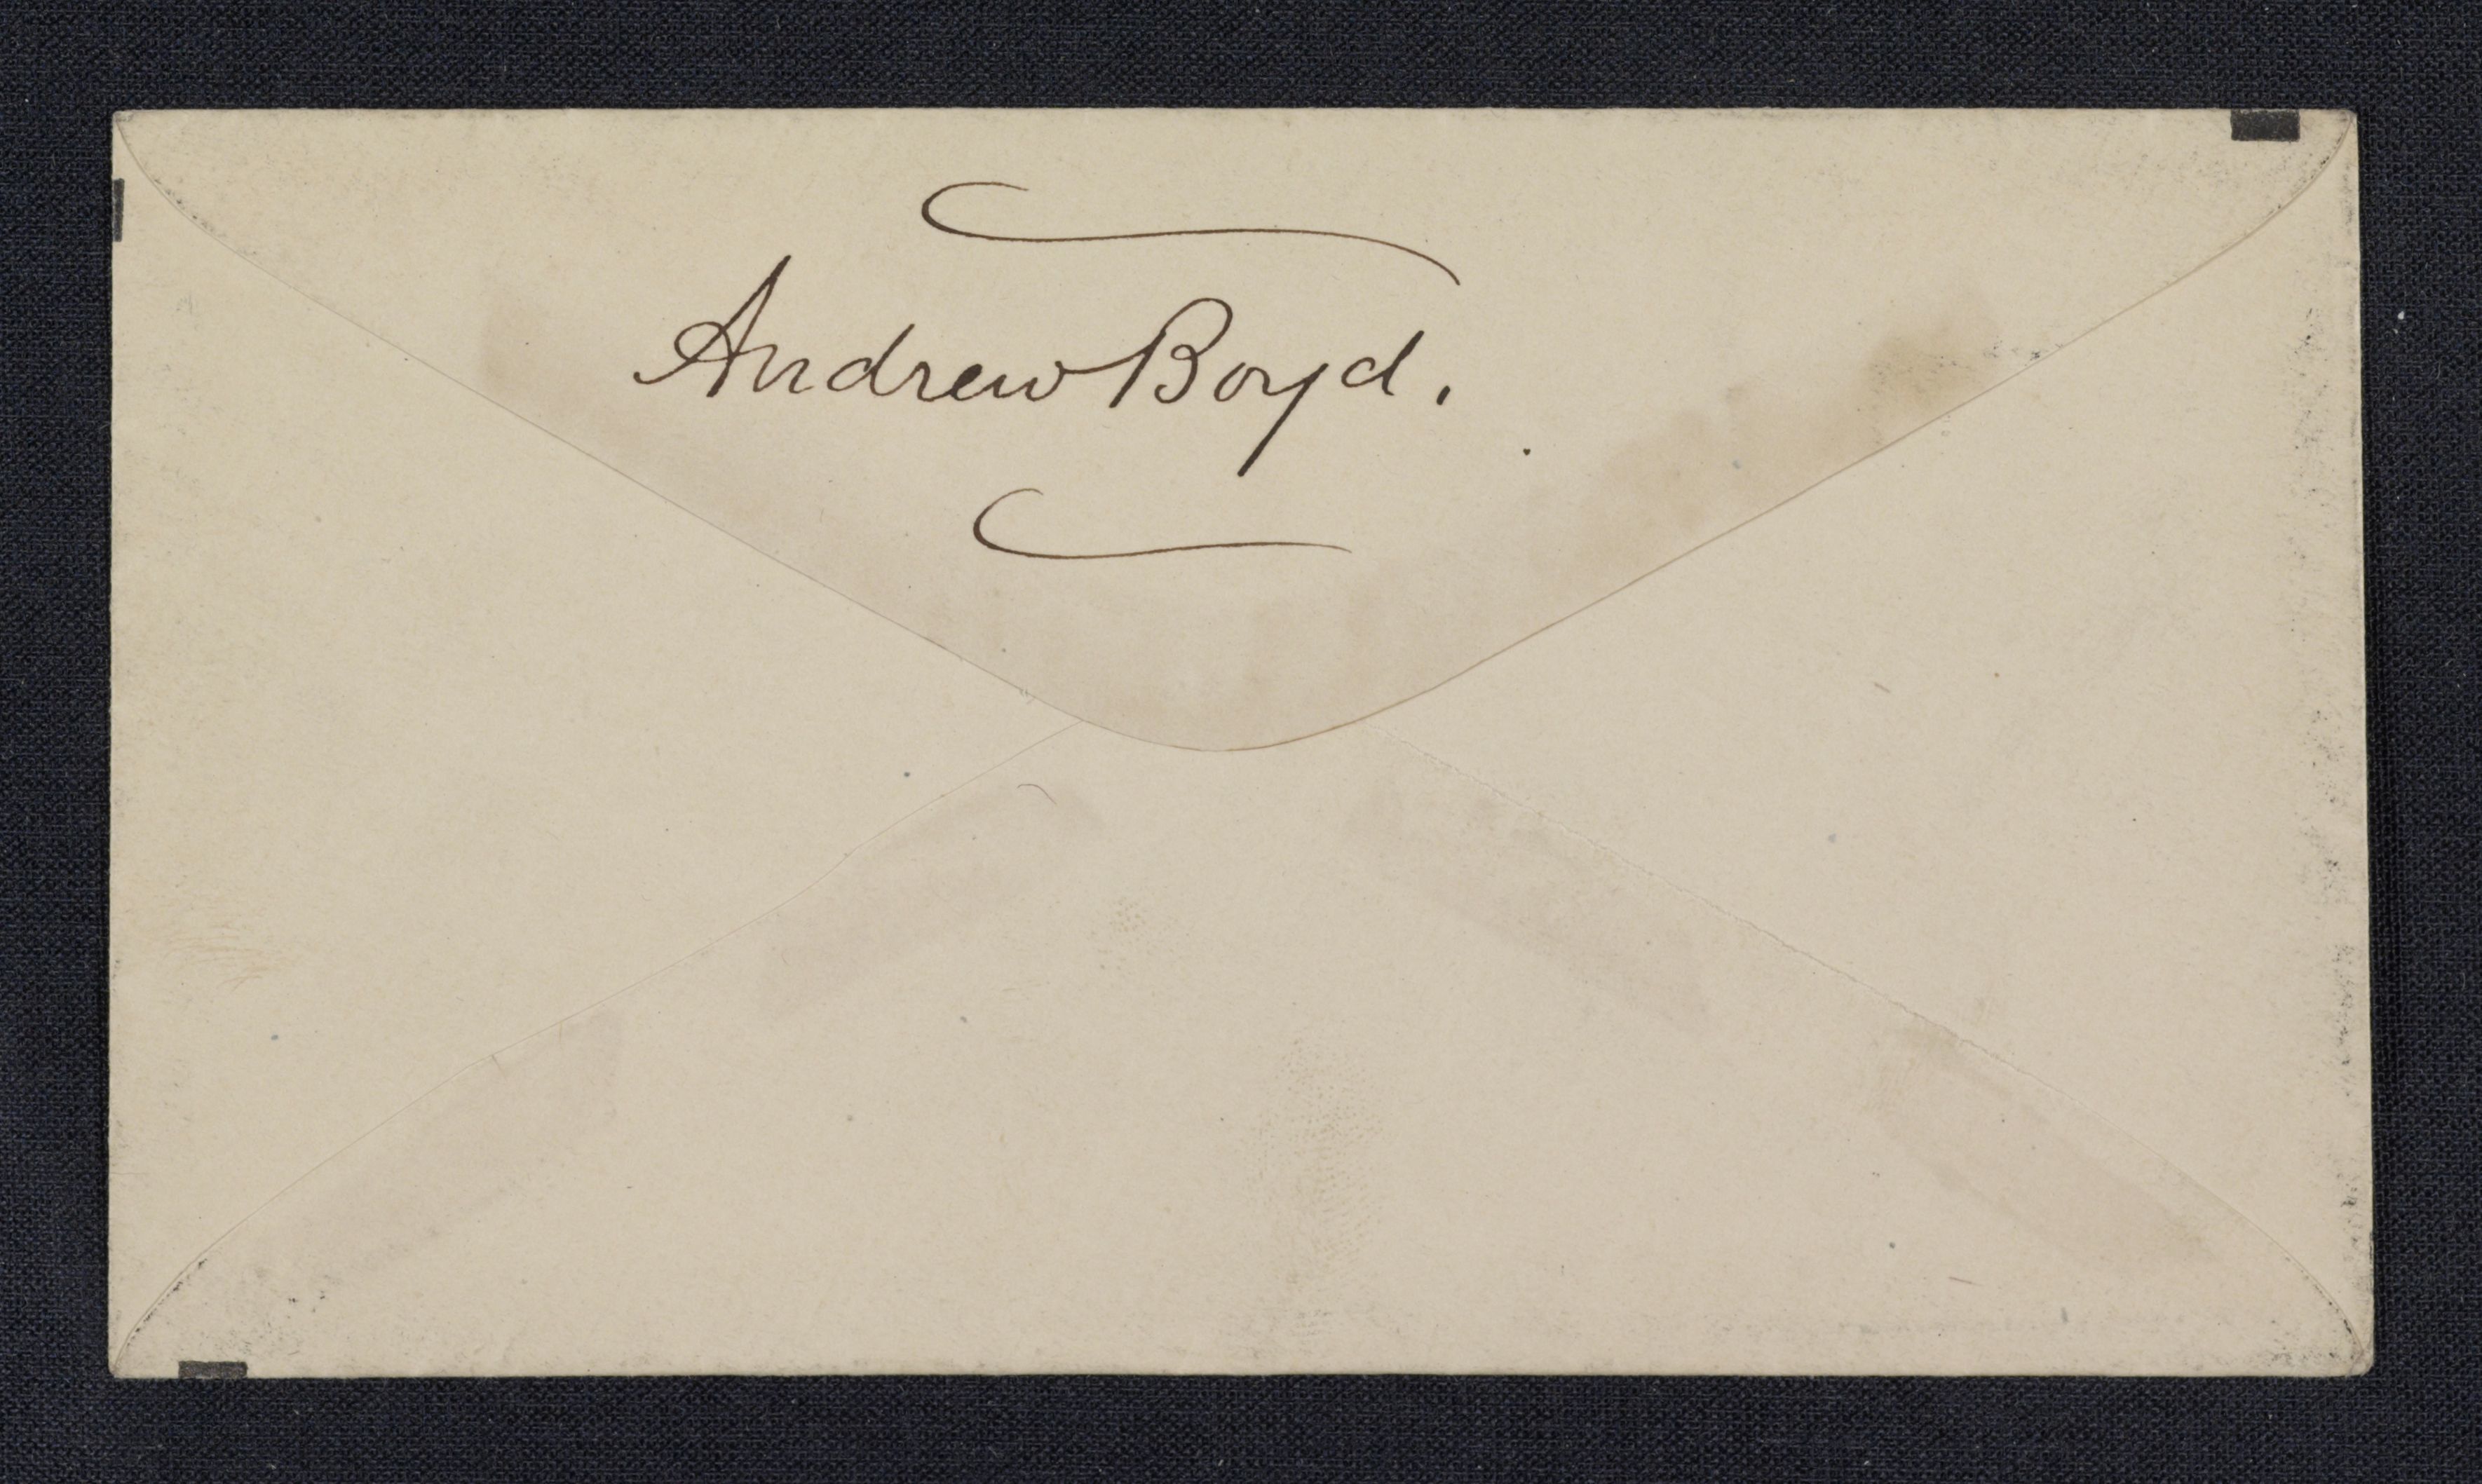 Andrew Boyd.